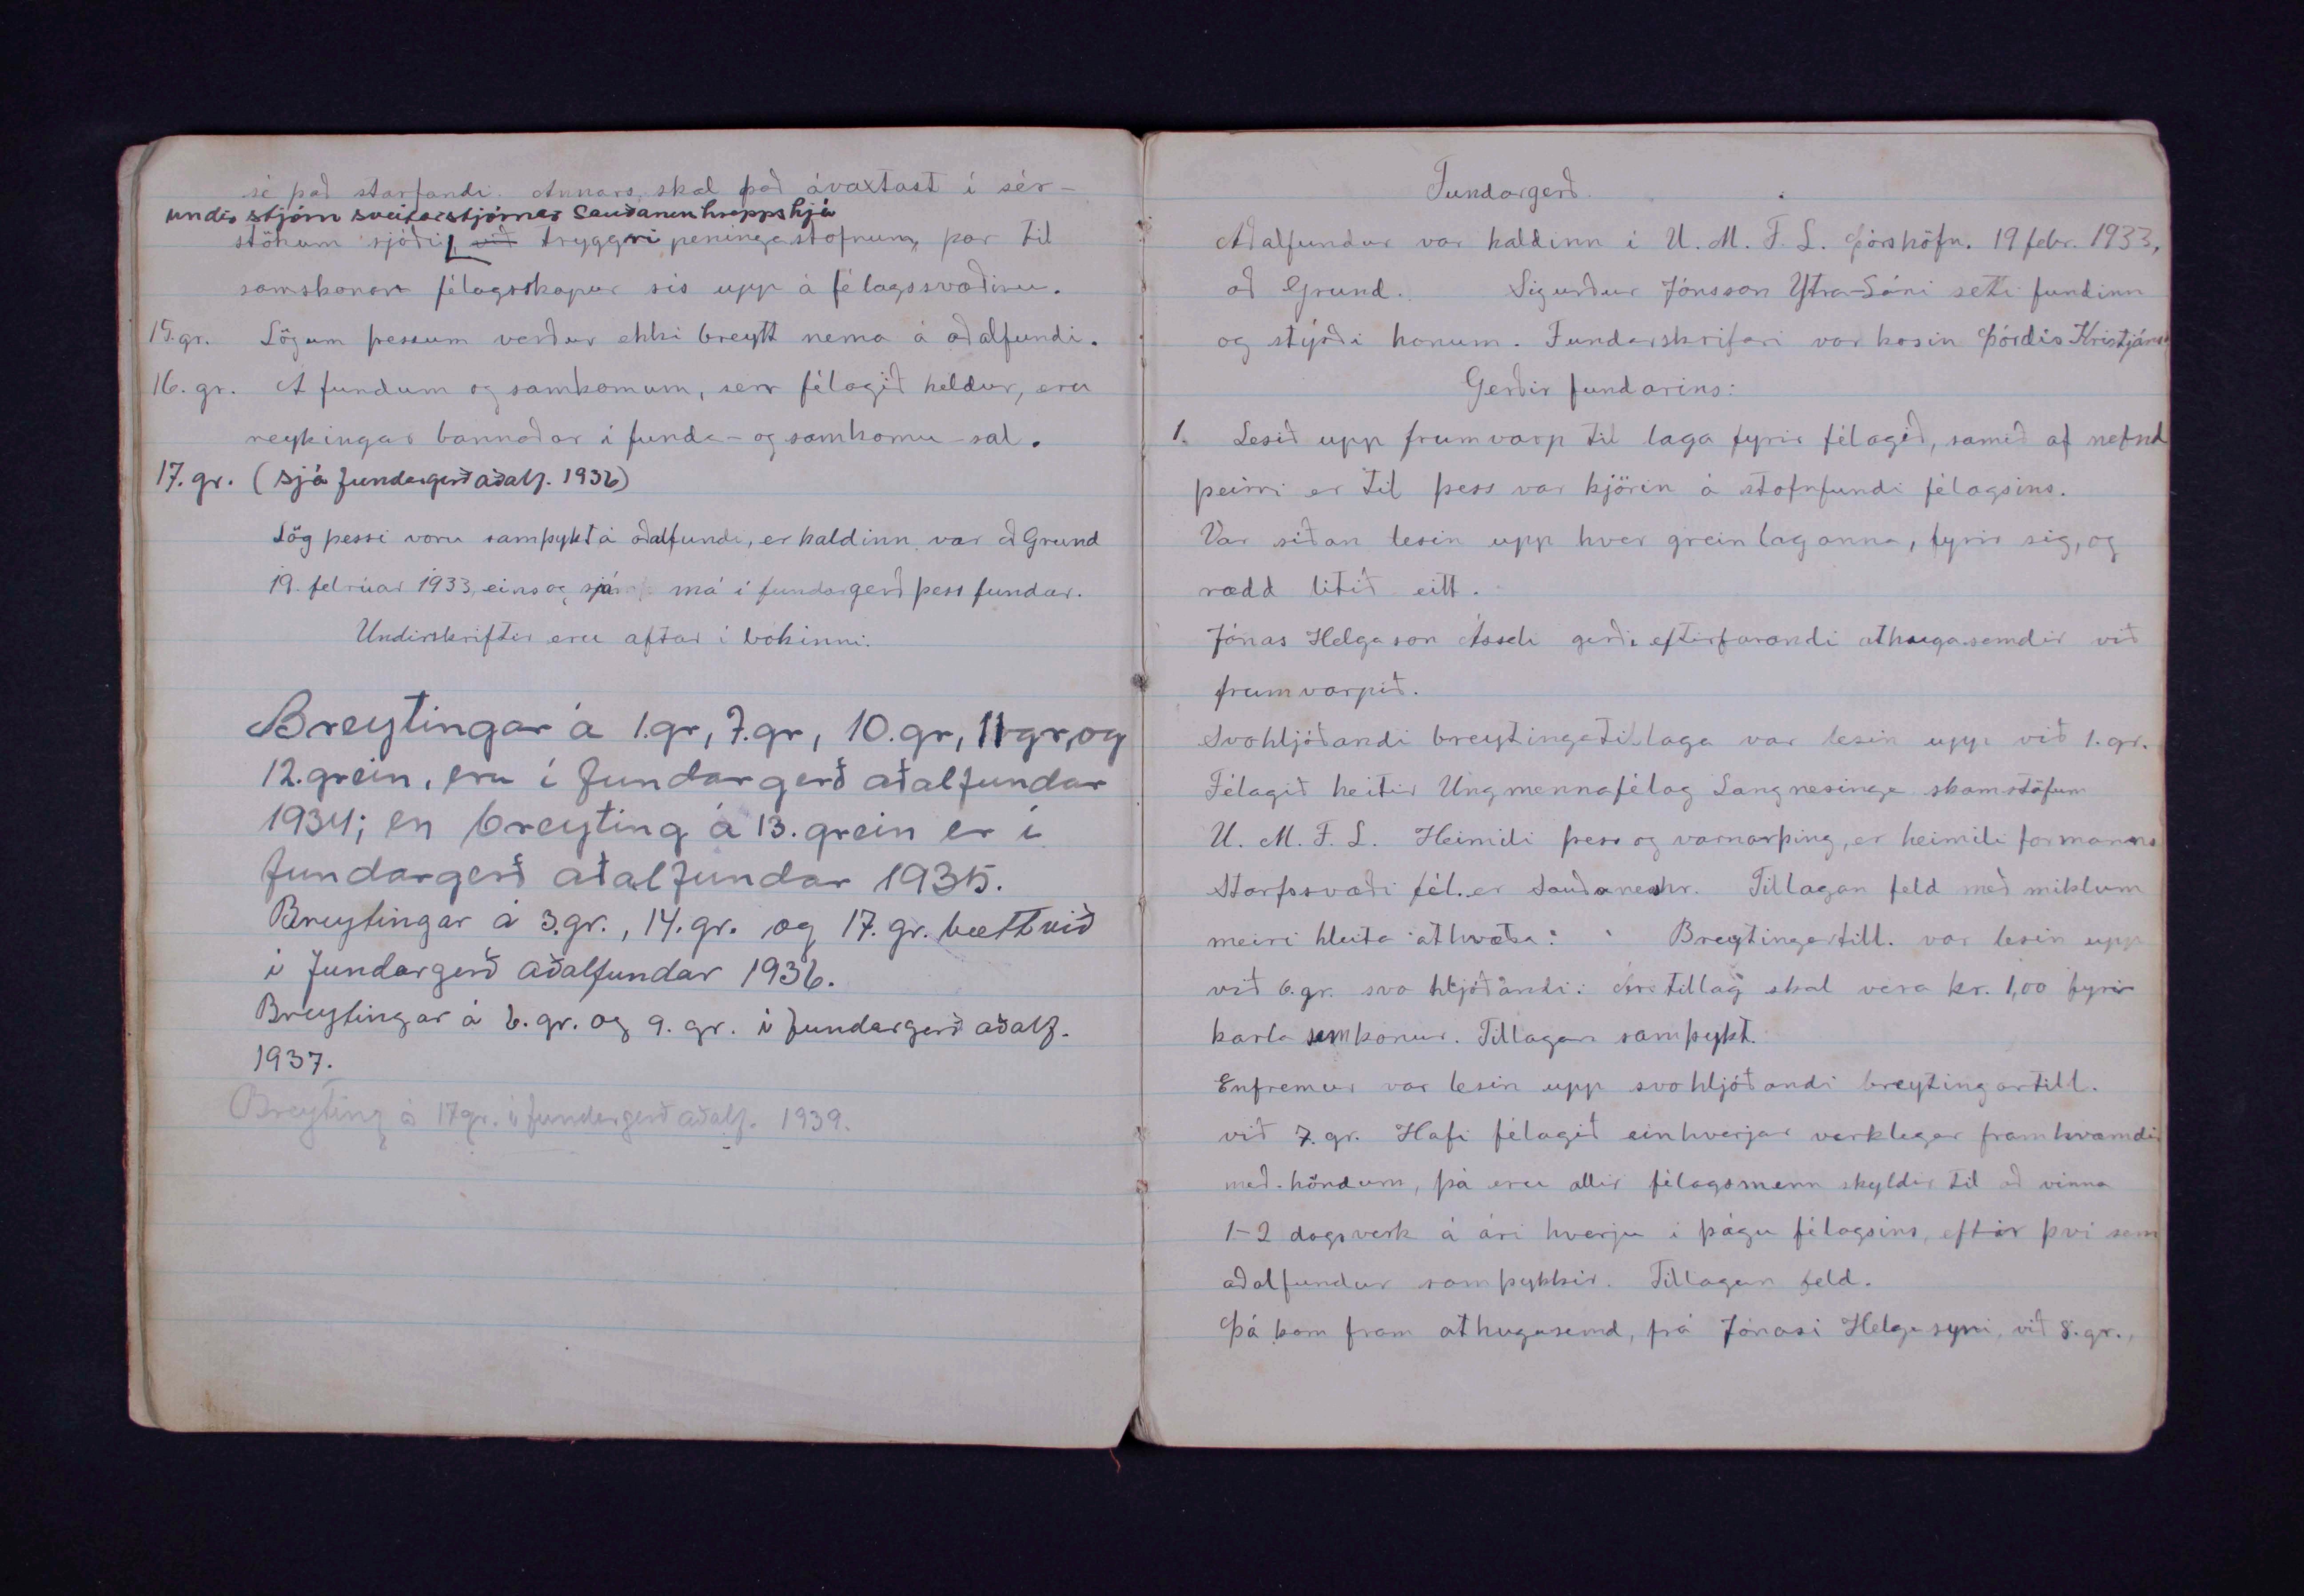 sé það starfandi. Annars, skal það ávaxtast í sér-
undir stjórn sveitarstjórnar Sauðaneshrepps hjá
stökum sjóði, við tryggri peningastofnun, þar til
samskonar félagsskapur rís upp á félagssvæðinu.
15. gr. Lögum þessum verður ekki breytt nema á aðalfundi.
16. gr. Á fundum og samkomum, sem félagið heldur, eru
reykingar bannaðar í funda- og samkomu-sal.
17. gr. (sjá fundargerð aðalf. 1936)
Lög þessi voru samþykt á aðalfundi, er haldinn var að Grund
19. febrúar 1933, eins og sjá má í fundargerð þess fundar.
Undirskriftir eru aftar í bókinni.
Breytingar á 1.gr, 7.gr, 10.gr, 11gr, og
12.grein, eru í fundargerð aðalfundar
1934; en breyting á 13. grein er í
fundargerð aðalfundar 1935.
Breytingar á 3.gr., 14.gr. og 17.gr. bætt við
í fundargerð aðalfundar 1936.
Breytingar á 6. gr. og 9. gr. í fundargerð aðalf.
1937.
Breyting á 17gr. í fundargerð aðalf. 1939.
Fundargerð.
Aðalfundur var haldinn í U. M. F. L. Þórshöfn. 19 febr. 1933,
að Grund. Sigurður Jónsson Ytra-Lóni setti fundinn
og stýrði honum. Fundarskrifari var kosin Þórdís Kristjáns
Gerðir fundarins:
1. Lesið upp frumvarp til laga fyrir félagið, samið af nefnd
þeirri er til þess var kjörin á stofnfundi félagsins.
Var síðan lesin upp hver grein laganna, fyrir sig, og
rædd lítið eitt.
Jónas Helgason Ásseli gerði eftirfarandi athugasemdir við
frumvarpið.
Svohljóðandi breytingatillaga var lesin upp við 1. gr.
Félagið heitir Ungmennafélag Langnesinga skamstöfum
U. M. F. L. Heimili þess og varnarþing, er heimili formanns
Starfssvæði fél. er Sauðaneshr. Tillagan feld með miklum
meiri hluta atkvæða: Breytingartill. var lesin upp
við 6. gr. svo hljóðandi: Árstillag skal vera kr. 1,00 fyrir
karla sem konur. Tillagan samþykt.
Enfremur var lesin upp svohljóðandi breytingartill.
við 7. gr. Hafi félagið einhverjar verklegar framkvæmdir
með-höndum, þá eru allir félagsmenn skyldir til að vinna
1-2 dagsverk á ári hverju í þágu félagsins, eftir því sem
aðalfundur samþykkir. Tillagan feld.
Þá kom fram athugasemd, frá Jónasi Helgasyni, við 8. gr.,